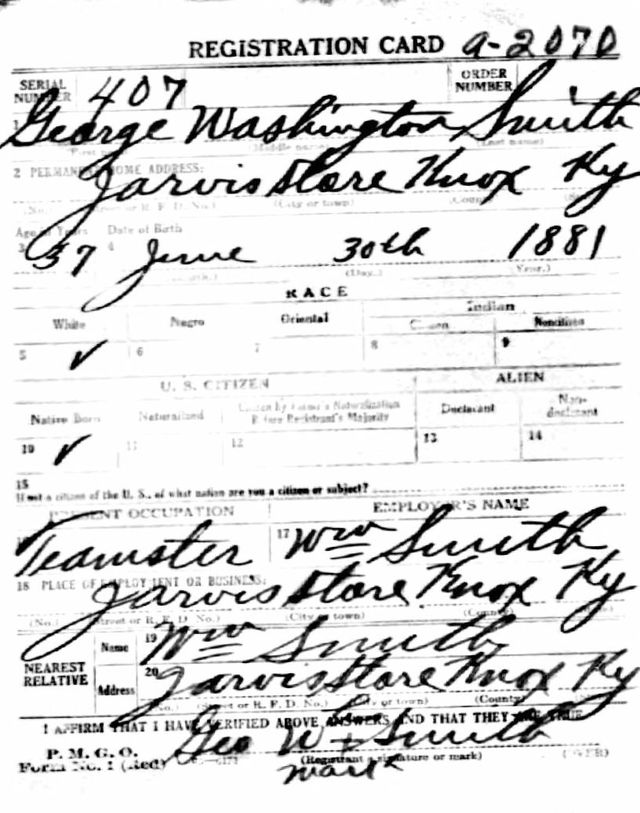 REGISTRATION CARD a-2070
SERIAL NUMBER 407 ORDER NUMBER
1 George Washington Smith
(Middle name) (Last name)
2 PERMANENT HOME ADDRESS:
Jarvis Store Knox Ky
(No.) (Street or R. F. D. No.) (City or town) (County)
Age in Years Date of Birth
3 37 4 June 30th 1881
(Day.) (Year.)
RACE
White Negro Oriental Indian
Citizen Noncitizen
5 ✓ 6 7 8 9
U. S. CITIZEN ALIEN
Native Born Naturalized Citizen by Father's Naturalization Before Registrant's Majority Declarant Non-declarant
10 ✓ 11 12 13 14
15
If not a citizen of the U. S., of what nation are you a citizen or subject?
PRESENT OCCUPATION EMPLOYER'S NAME
Teamster 17 Wm Smith
18 PLACE OF EMPLOYMENT OR BUSINESS:
Jarvis Store Knox Ky
(No.) (Street or R. F. D. No.) (City or town) (County)
NEAREST RELATIVE
Name 19 Wm Smith
Address 20 Jarvis Store Knox Ky
(No.) (Street or R. F. D. No.) (City or town) (County)
I AFFIRM THAT I HAVE VERIFIED ABOVE ANSWERS AND THAT THEY ARE TRUE
P. M. G. O.
Form No. 1 (Red) Geo W + Smith
(Registrant's signature or mark) (OVER)
mark